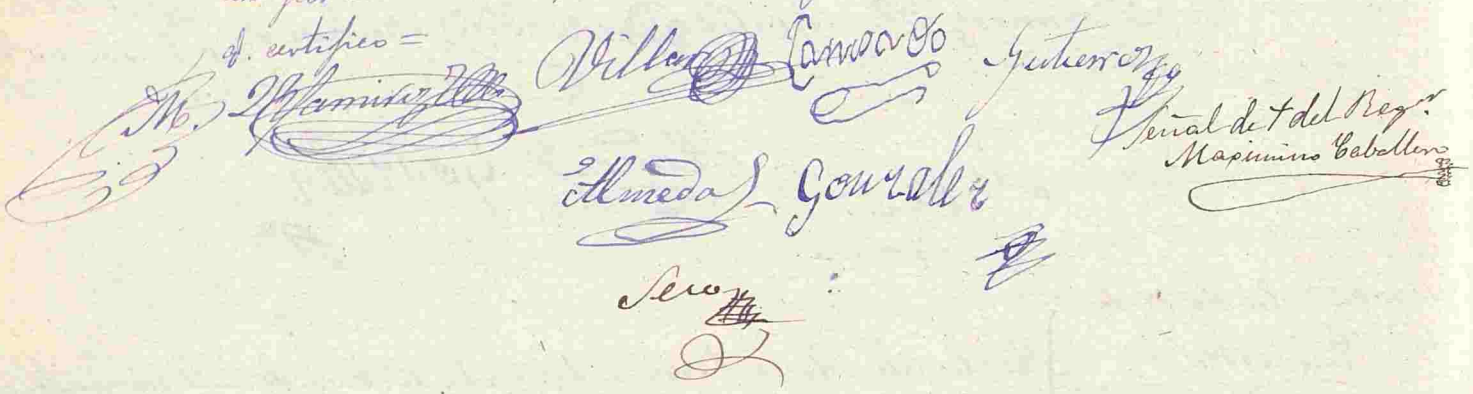 q. certifico =
M. Ramirez Villar Camoado Gutierrez
Señal de + del Regor
Maximino Caballero
Almeda Gonzalez
Sero